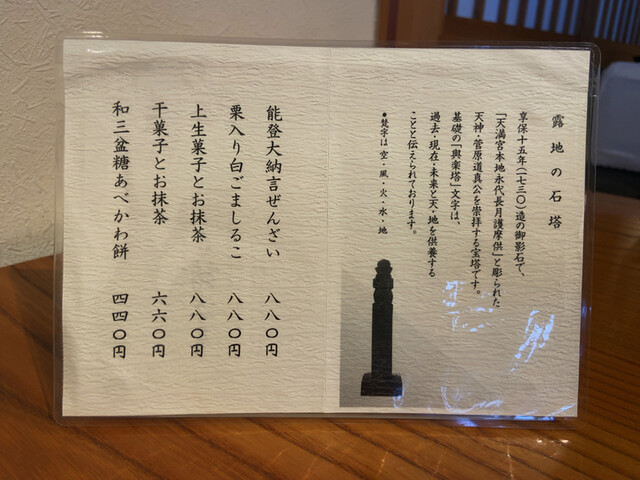 露地の石塔
享保十五年(一七三〇)造の御影石で、
「天満宮本地永代長月護摩供」と彫られた
天神・菅原道真公を崇拝する宝塔です。
基礎の「與楽塔」文字は、
過去・現在・未来と天・地を供養する
ことと伝えられております。
●梵字は 空・風・火・水・地
能登大納言ぜんざい 八八〇円
栗入り白ごましるこ 八八〇円
上生菓子とお抹茶 八八〇円
干菓子とお抹茶 六六〇円
和三盆糖あべかわ餅 四四〇円